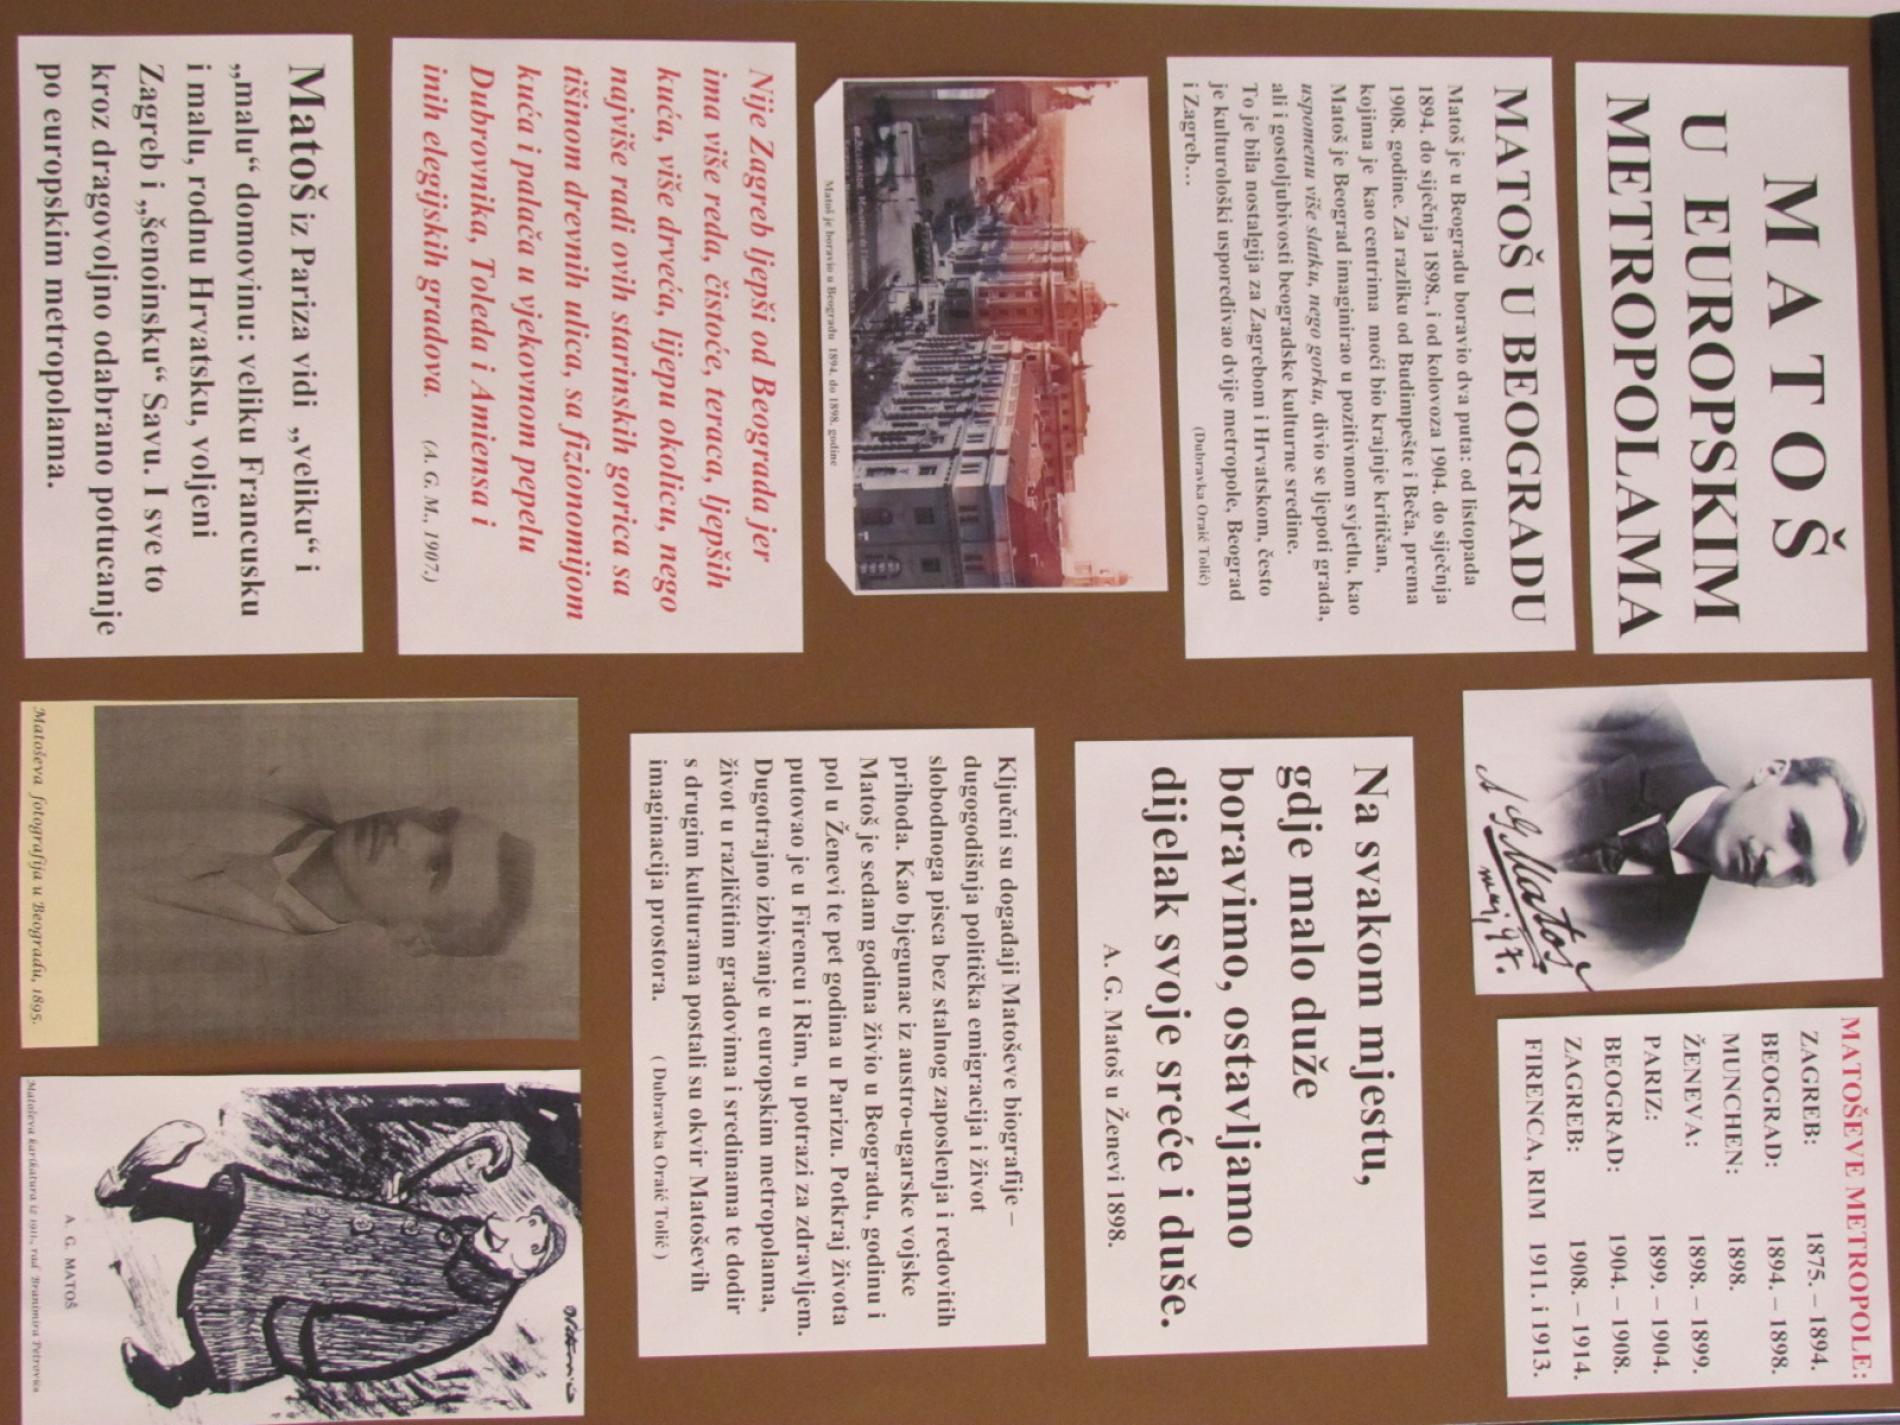 MATOŠ
U EUROPSKIM
METROPOLAMA
A G Matoš
MATOŠEVE METROPOLE:
ZAGREB: 1875. – 1894.
BEOGRAD: 1894. – 1898.
MUNCHEN: 1898.
ŽENEVA: 1898. – 1899.
PARIZ: 1899. – 1904.
BEOGRAD: 1904. – 1908.
ZAGREB: 1908. – 1914.
FIRENCA, RIM 1911. i 1913.
MATOŠ U BEOGRADU
Matoš je u Beogradu boravio dva puta: od listopada
1894. do siječnja 1898., i od kolovoza 1904. do siječnja
1908. godine. Za razliku od Budimpešte i Beča, prema
kojima je kao centrima moći bio krajnje kritičan,
Matoš je Beograd imaginirao u pozitivnom svjetlu, kao
uspomenu više slatku, nego gorku, divio se ljepoti grada,
ali i gostoljubivosti beogradske kulturne sredine.
To je bila nostalgija za Zagrebom i Hrvatskom, često
je kulturološki uspoređivao dvije metropole, Beograd
i Zagreb...
(Dubravka Oraić Tolić)
Na svakom mjestu,
gdje malo duže
boravimo, ostavljamo
dijelak svoje sreće i duše.
A. G. Matoš u Ženevi 1898.
Matoš je boravio u Beogradu 1894. do 1898. godine
Ključni su događaji Matoševe biografije –
dugogodišnja politička emigracija i život
slobodnoga pisca bez stalnog zaposlenja i redovitih
prihoda. Kao bjegunac iz austro-ugarske vojske
Matoš je sedam godina živio u Beogradu, godinu i
pol u Ženevi te pet godina u Parizu. Potkraj života
putovao je u Firencu i Rim, u potrazi za zdravljem.
Dugotrajno izbivanje u europskim metropolama,
život u različitim gradovima i sredinama te dodir
s drugim kulturama postali su okvir Matoševih
imaginacija prostora. (Dubravka Oraić Tolić)
Nije Zagreb ljepši od Beograda jer
ima više reda, čistoće, teraca, ljepših
kuća, više drveća, lijepu okolicu, nego
najviše radi ovih starinskih gorica sa
tišinom drevnih ulica, sa fizionomijom
kuća i palača u vjekovnom pepelu
Dubrovnika, Toleda i Amiensa i
inih elegijskih gradova. (A. G. M., 1907.)
Matoš iz Pariza vidi „veliku“ i
„malu“ domovinu: veliku Francusku
i malu, rodnu Hrvatsku, voljeni
Zagreb i „šenoinsku“ Savu. I sve to
kroz dragovoljno odabrano potucanje
po europskim metropolama.
Matoševa fotografija u Beogradu, 1895.
A. G. MATOŠ
Matoševa karikatura iz 1911., rad Branimira Petrovića